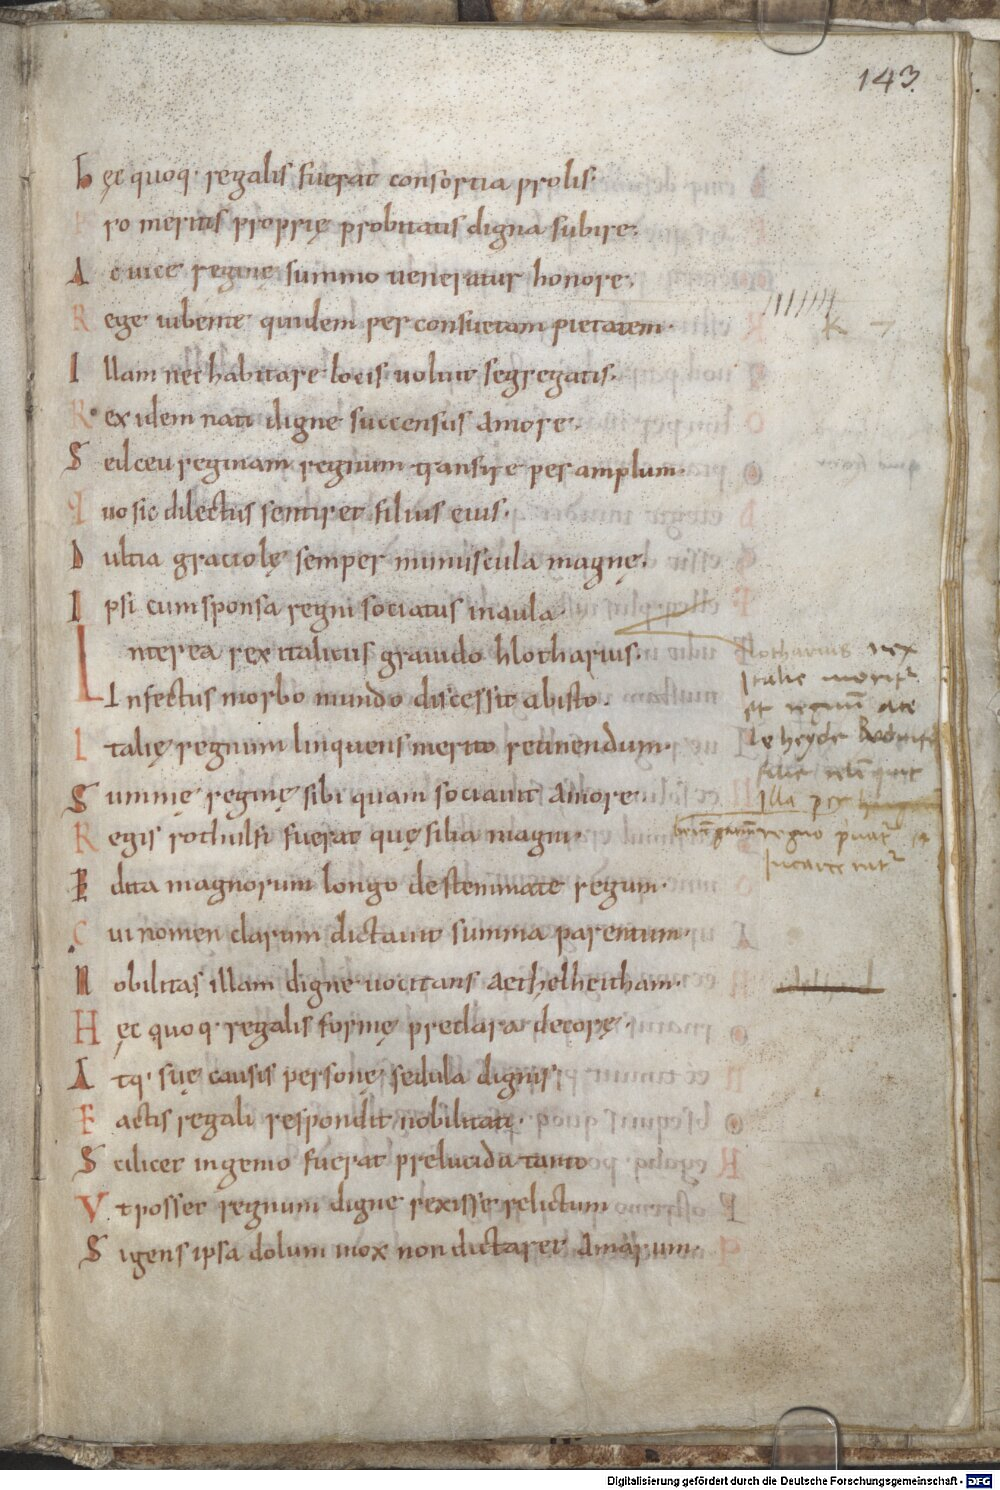 143.
Hęc quoq· regalis fuerat consortia prolis·
Pro meritis proprię probitatis digna subire;
Ac uice reginę summo ueneratur honore;
Rege iubente quidem per consuetam pietatem·
Illam nec habitare locis uoluit segregatis·
Rex idem nati digne succensus amore·
Sed ceu reginam regnum transire per amplum·
Quo sic dilectus sentiret filius eius·
Dulcia graciolę semper munuscula magnę·
Ipsi cum sponsa regni sociatus in aula·
Interea rex italicus grauido hlotharius·
Infectus morbo mundo discessit ab isto·
Italię regnum linquens merito retinendum·
Summę reginę sibi quam sociauit amore
Regis rothulfi fuerat quę filia magni·
Edita magnorum longo destemmate regum·
Cui nomen clarum dictauit summa parentum·
Nobilitas illam digne uocitans aethelheitham·
Hęc quoq· regalis formę preclara decorę·
Atq· suę causis personę sedula dignis
Factis regali respondit nobilitati·
Scilicet ingenio fuerat prelucida tanto
Vt posset regnum digne rexisse relictum
Si gens ipsa dolum mox non dictaret amarum·
Lotharius rex
Italie moritur
et regnum
filie
Illa per
regno
Digitalisierung gefördert durch die Deutsche Forschungsgemeinschaft - DFG